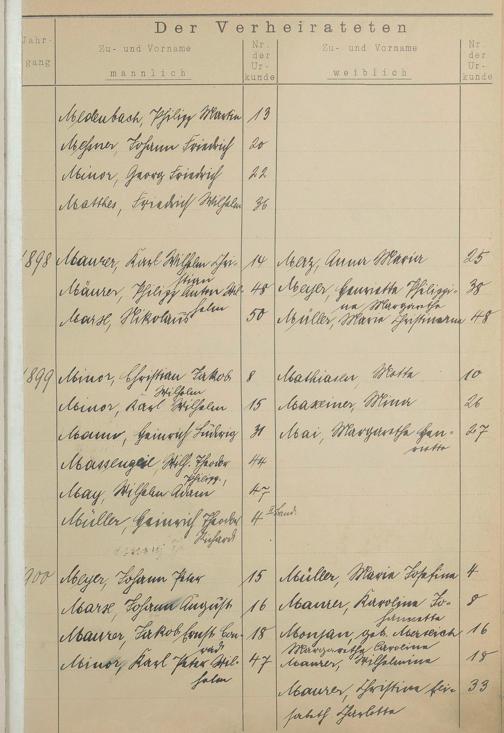 Der Verheirateten
Jahr-
gang
Zu- und Vorname
männlich
Nr.
der
Ur-
kunde
Zu- und Vorname
weiblich
Nr.
der
Ur-
kunde
Medenbach, Philipp Martin 13
Mehner, Johann Friedrich 20
Minor, Georg Friedrich 22
Matthes, Friedrich Wilhelm 36
1898 Maurer, Karl Wilhelm Chri- 14 Merz, Anna Maria 25
stian
Mäurer, Philipp Anton Wil- 48 Meyer, Henriette Philippi- 38
helm na Margarethe
Marx, Nikolaus 50 Müller, Marie Christianna 48
1899 Minor, Christian Jakob 8 Mathiasen, Metta 10
Wilhelm
Minor, Karl Wilhelm 15 Maxeiner, Mina 26
Mann, Heinrich Ludwig 31 Mai, Margarethe Hen- 27
riette
Massengeil, Wilh. Theodor 44
Philipp
May, Wilhelm Adam 47
Müller, Heinrich Theodor 4 2 Band.
Richard
1900 Meyer, Johann Peter 15 Müller, Maria Josefina 4
Marx, Johann August 16 Maurer, Karolina Jo- 8
hannette
Maurer, Jakob Ernst Con- 18 geb. 16
rad Margarethe Caroline
Minor, Karl Peter Wil- 47 Maurer, Wilhelmine 18
helm
Maurer, Christina Eli- 33
sabeth Charlotte